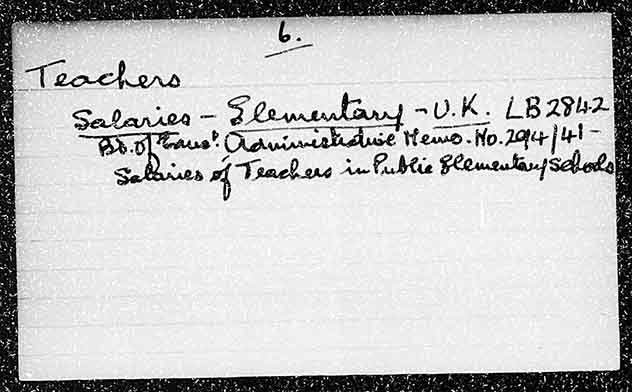 6.
Teachers
Salaries - Elementary - U.K. LB2842
Bd. of Educn. Administrative Memo. No. 294/41 -
Salaries of Teachers in Public Elementary Schools